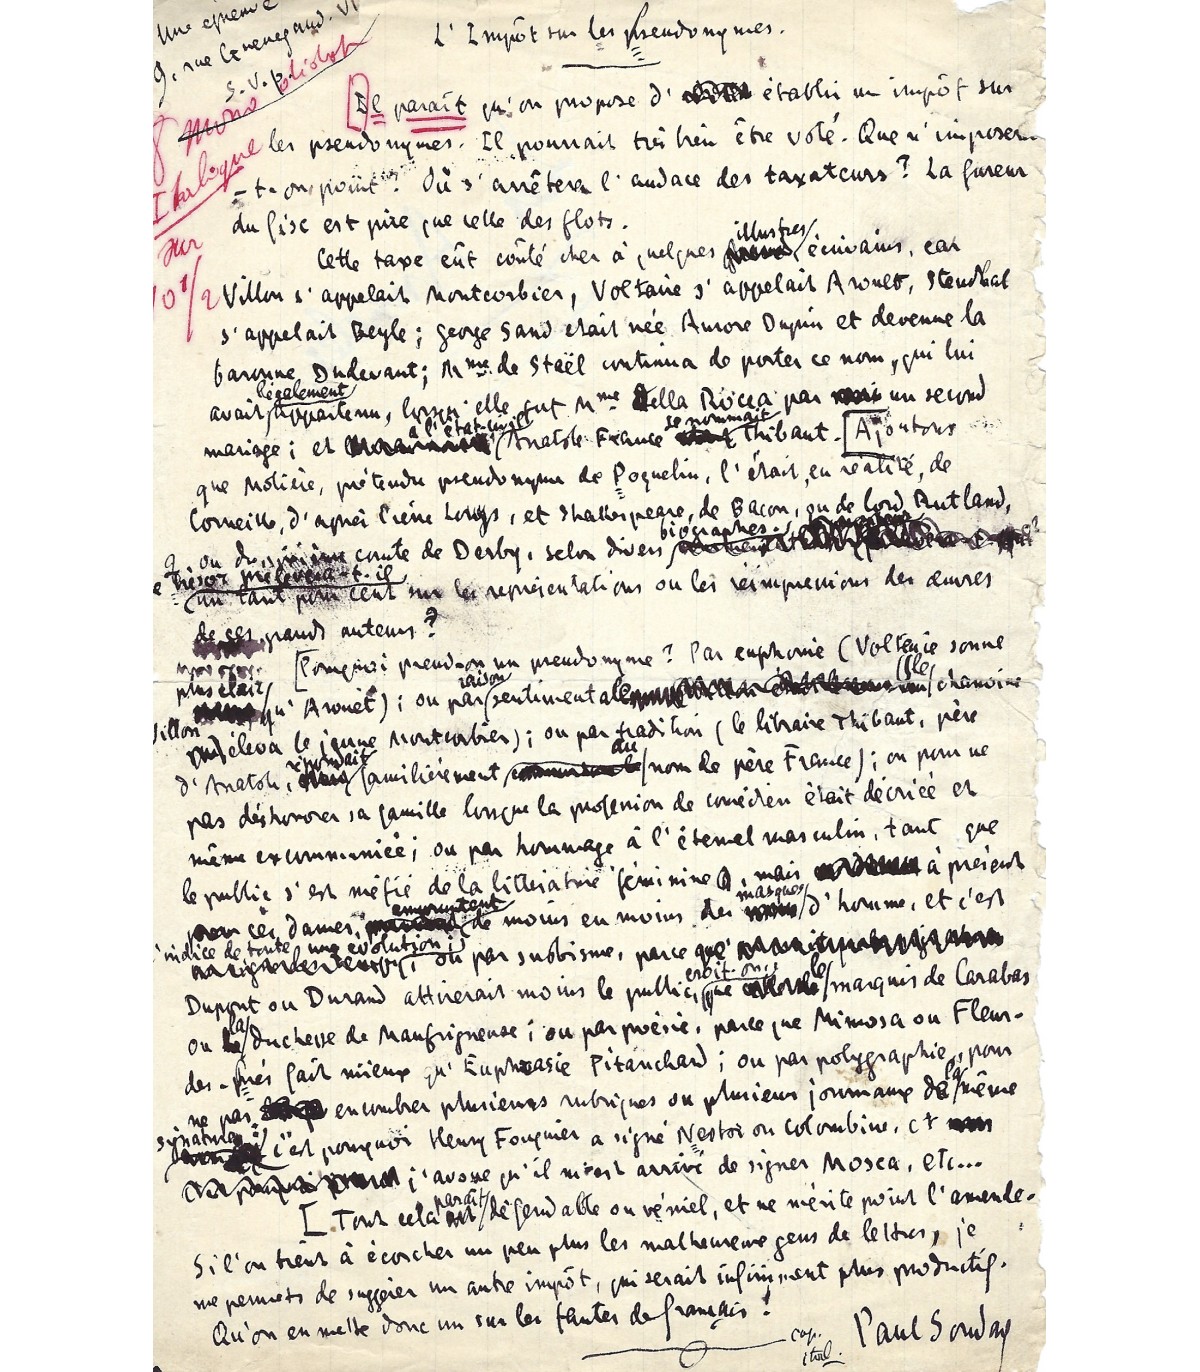 Une épreuve
9, rue Guénégaud. VI
S.V.P.
L'Impôt sur les pseudonymes.
8 mono
Italique
sur
10 1/2
Il paraît qu'on propose d' établir un impôt sur
les pseudonymes. Il pourrait très bien être voté. Que n'impose
-t-on point ? Où s'arrêtera l'audace des taxateurs ? La fureur
du fisc est pire que celle des flots.
Cette taxe eût coûté cher à quelques illustres écrivains, car
Villon s'appelait Montcorbier, Voltaire s'appelait Arouet, Stendhal
s'appelait Beyle ; George Sand était née Aurore Dupin et devenue la
baronne Dudevant ; Mme de Staël continua de porter ce nom, qui lui
avait légalement appartenu, lorsqu'elle fut Mme della Rocca par un second
mariage ; et à l'état-civil Anatole France se nommait Thibaut. [Ajoutons
que Molière, prétendu pseudonyme de Poquelin, l'était, en réalité, de
Corneille, d'après Pierre Louys, et Shakespeare, de Bacon, ou de Lord Rutland,
ou du sixième comte de Derby, selon divers biographes.
Le Trésor prélèvera-t-il
un tant pour cent sur les représentations ou les réimpressions des œuvres
de ces grands auteurs ?
[Pourquoi prend-on un pseudonyme ? Par euphonie (Voltaire sonne
plus clair qu'Arouet) ; ou par raison sentimentale (le chanoine
Villon éleva le jeune Montcorbier) ; ou par tradition (le libraire Thibaut, père
d'Anatole, répondait familièrement au nom de père France) ; ou pour ne
pas déshonorer sa famille lorsque la profession de comédien était décriée et
même excommuniée ; ou par hommage à l'éternel masculin, tant que
le public s'est méfié de la littérature féminine, mais à présent
ces dames empruntent de moins en moins des masques d'homme, et c'est
l'indice de toute une évolution ; ou par snobisme, parce que
Dupont ou Durand attirerait moins le public, croit-on, que le marquis de Carabas
ou la duchesse de Maufrigneuse ; ou par poésie, parce que Mimosa ou Fleur-
des-prés fait mieux qu'Euphrasie Pitanchard ; ou par polygraphie, pour
ne pas encombrer plusieurs rubriques ou plusieurs journaux de la même
signature : c'est pourquoi Henry Fouquier a signé Nestor ou Colombine, et
j'avoue qu'il m'est arrivé de signer Mosca, etc...
[Tout cela paraît défendable ou véniel, et ne mérite point l'amende.
Si l'on tient à écorcher un peu plus les malheureux gens de lettres, je
me permets de suggérer un autre impôt, qui serait infiniment plus productif.
Qu'on en mette donc un sur les fautes de français !
cap.
ital.
Paul Souday